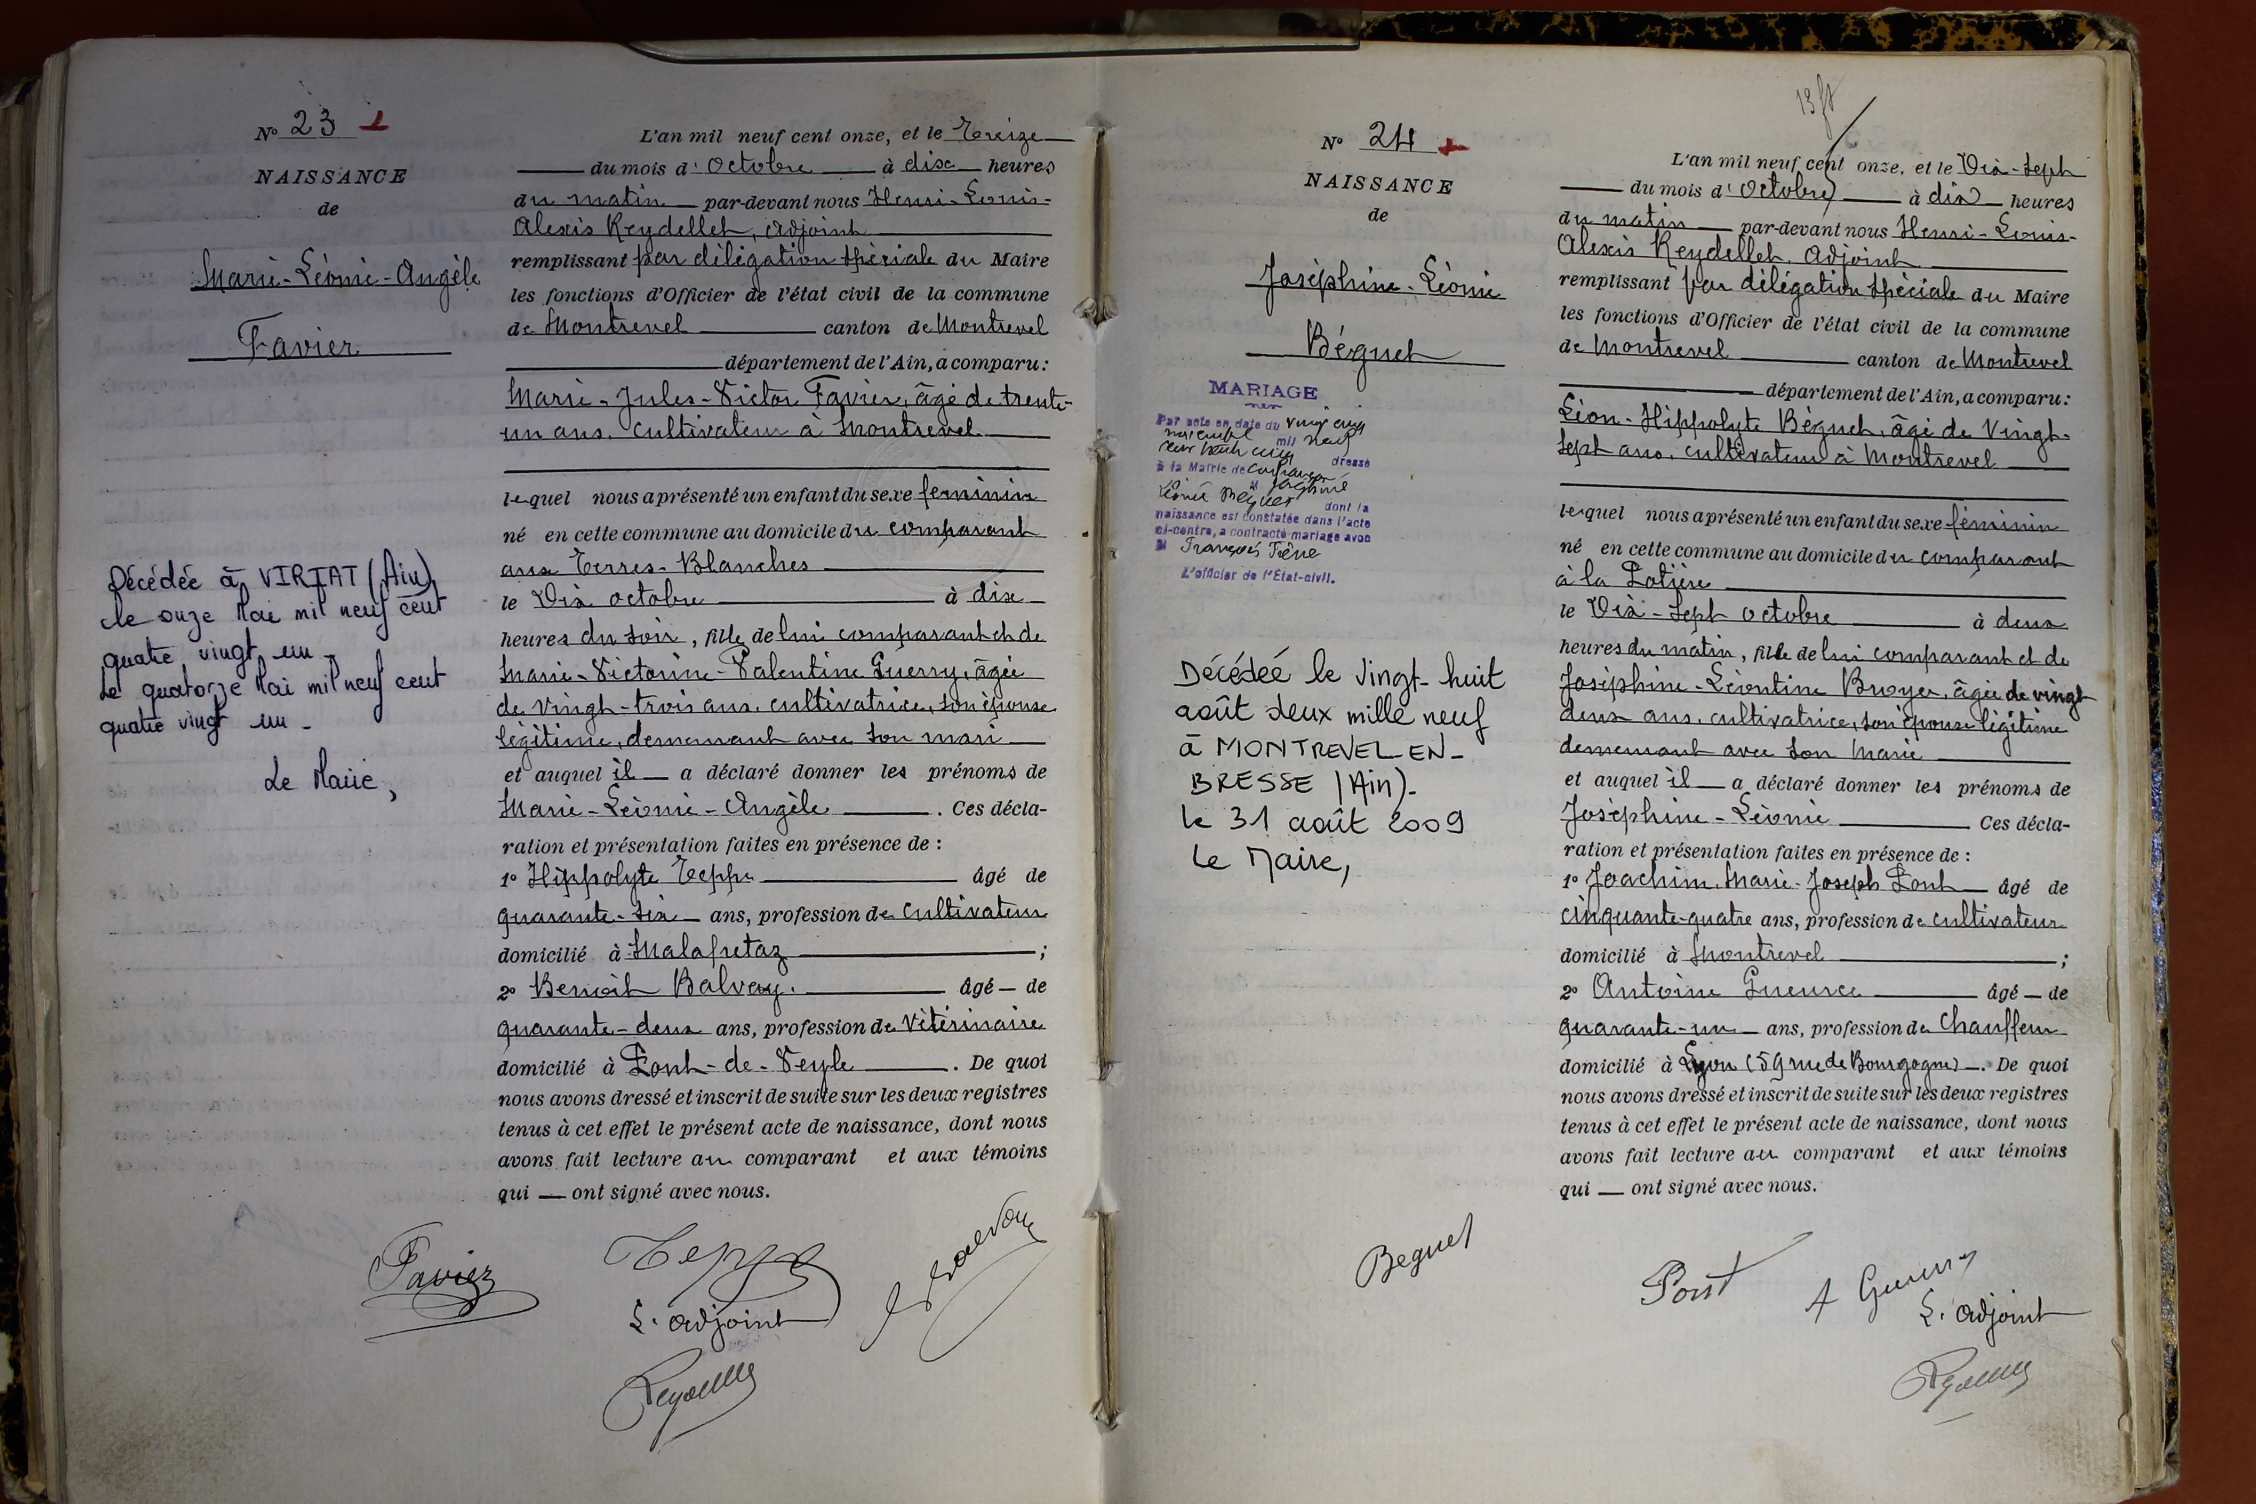 N° 23
NAISSANCE
de
Marie-Léonie-Angèle
Favier
Décédée à VIRIAT (Ain)
le onze Mai mil neuf cent
quatre vingt un -
Le quatorze Mai mil neuf cent
quatre vingt un -
Le Maire,
L'an mil neuf cent onze, et le Treize
du mois d'Octobre à dix heures
du matin par-devant nous Henri-Louis-
Alexis Reydellet, Adjoint
remplissant par délégation spéciale du Maire
les fonctions d'Officier de l'état civil de la commune
de Montrevel canton de Montrevel
département de l'Ain, a comparu:
Marie-Jules-Victor Favier, âgé de trente-
un ans, cultivateur à Montrevel
lequel nous a présenté un enfant du sexe féminin
né en cette commune au domicile du comparant
aux Terres-Blanches
le Dix octobre à dix
heures du soir, fille de lui comparant et de
Marie-Victorine-Valentine Guerry, âgée
de vingt-trois ans, cultivatrice, son épouse
légitime, demeurant avec son mari
et auquel il a déclaré donner les prénoms de
Marie-Léonie-Angèle. Ces décla-
ration et présentation faites en présence de :
1° Hippolyte Teppe âgé de
quarante-six ans, profession de cultivateur
domicilié à Malafretaz ;
2° Benoît Balvay. âgé de
quarante-deux ans, profession de Vétérinaire
domicilié à Pont-de-Veyle. De quoi
nous avons dressé et inscrit de suite sur les deux registres
tenus à cet effet le présent acte de naissance, dont nous
avons fait lecture au comparant et aux témoins
qui ont signé avec nous.
Favier
Teppe
Balvay
L'adjoint
Reydellet
N° 24
NAISSANCE
de
Joséphine-Léonie
Béguet
MARIAGE
Par acte en date du vingt cinq
novembre mil neuf
cent trente cinq dressé
à la Mairie de
M Joséphine
Léonie Béguet dont la
naissance est constatée dans l'acte
ci-contre, a contracté mariage avec
M François
L'officier de l'Etat-civil.
Décédée le vingt-huit
août deux mille neuf
à MONTREVEL-EN-
BRESSE (Ain)-
le 31 août 2009
Le Maire,
L'an mil neuf cent onze, et le Dix-sept
du mois d'Octobre à dix heures
du matin par-devant nous Henri-Louis-
Alexis Reydellet, Adjoint
remplissant par délégation spéciale du Maire
les fonctions d'Officier de l'état civil de la commune
de Montrevel canton de Montrevel
département de l'Ain, a comparu:
Léon-Hippolyte Béguet, âgé de Vingt-
sept ans, cultivateur à Montrevel
lequel nous a présenté un enfant du sexe féminin
né en cette commune au domicile du comparant
à la Potière
le Dix-sept octobre à deux
heures du matin, fille de lui comparant et de
Joséphine-Léontine Broyer, âgée de vingt
deux ans, cultivatrice, son épouse légitime
demeurant avec son Marie
et auquel il a déclaré donner les prénoms de
Joséphine-Léonie Ces décla-
ration et présentation faites en présence de :
1° Joachim-Marie-Joseph Pont âgé de
cinquante-quatre ans, profession de cultivateur
domicilié à Montrevel ;
2° Antoine Gueurce âgé de
quarante-un ans, profession de Chauffeur
domicilié à Lyon (59 rue de Bourgogne). De quoi
nous avons dressé et inscrit de suite sur les deux registres
tenus à cet effet le présent acte de naissance, dont nous
avons fait lecture au comparant et aux témoins
qui ont signé avec nous.
Beguet
Pont
A Gueurce
L'adjoint
Reydellet